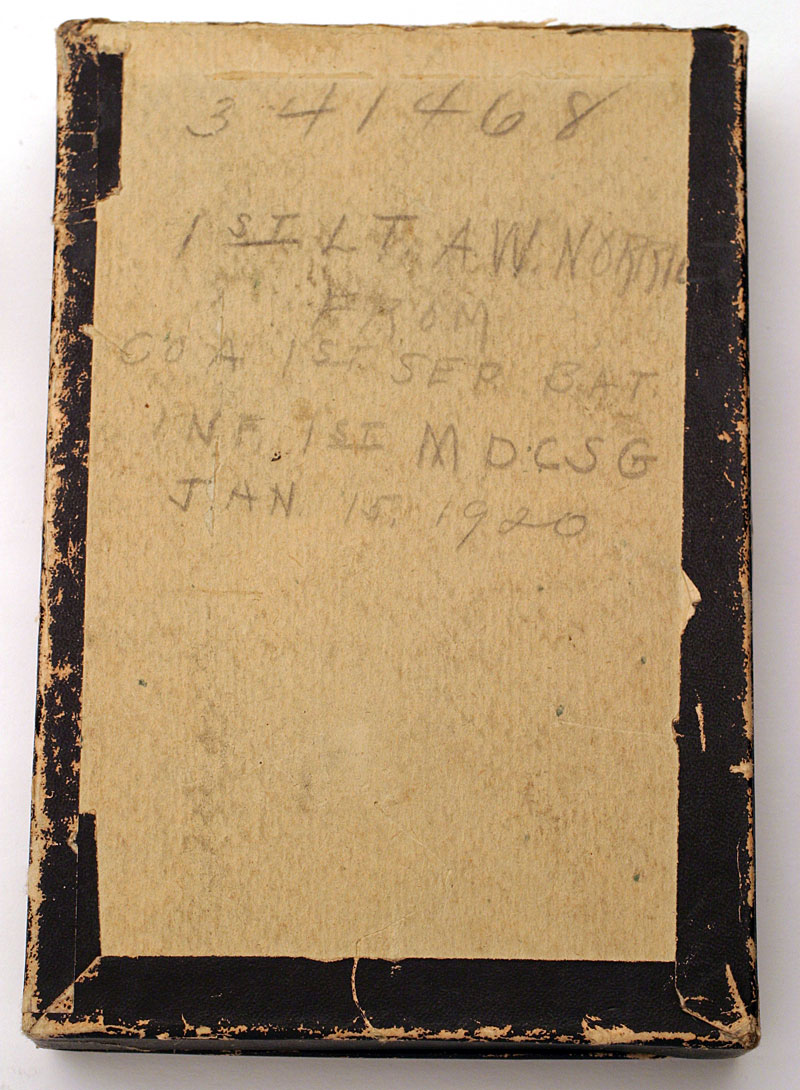 341468
1ST LT. A.W. NORRIS
FROM
CO A 1ST SEP. BAT.
INF. 1ST MDCSG
JAN 15, 1920